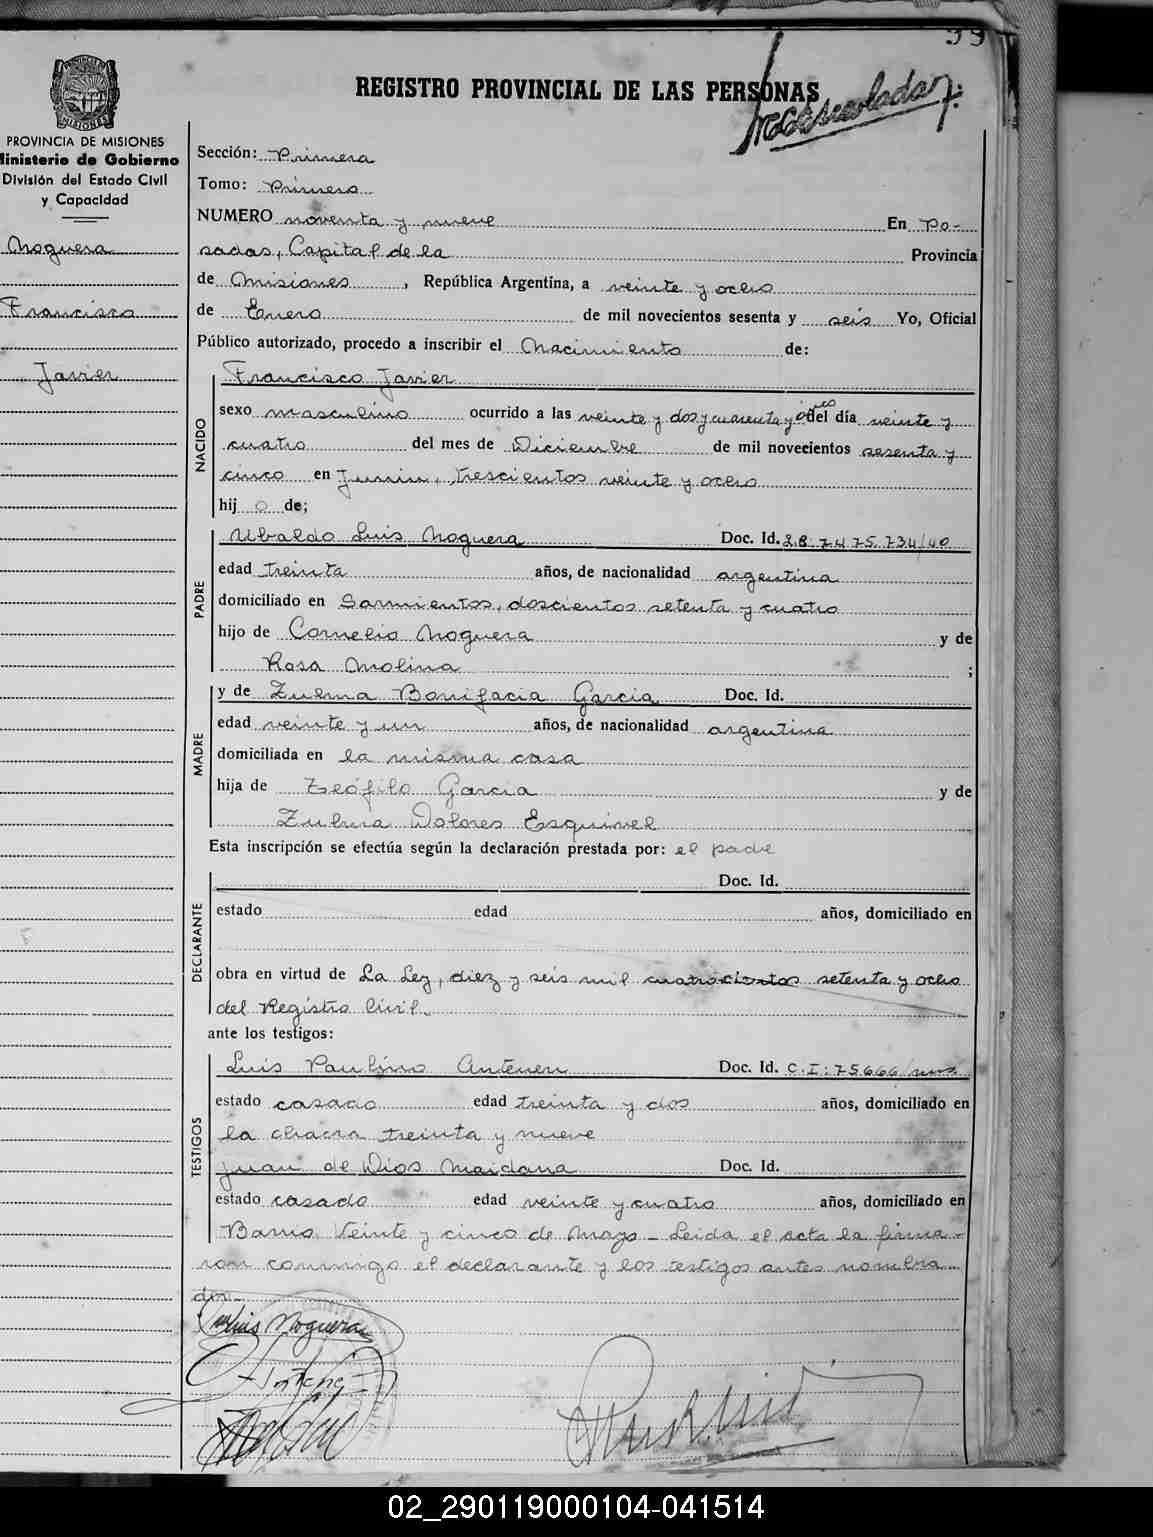 99
REGISTRO PROVINCIAL DE LAS PERSONAS
PROVINCIA DE MISIONES
Ministerio de Gobierno
División del Estado Civil
y Capacidad
Noguera
Francisco
Javier
Sección: Primera
Tomo: Primero
NUMERO noventa y nueve En Po-
sadas, Capital de la Provincia
de Misiones, República Argentina, a veinte y ocho
de Enero de mil novecientos sesenta y seis Yo, Oficial
Público autorizado, procedo a inscribir el Nacimiento de:
NACIDO
Francisco Javier
sexo masculino ocurrido a las veinte y dos y cuarenta y cinco del día veinte y
cuatro del mes de Diciembre de mil novecientos sesenta y
cinco en Junin, trescientos veinte y ocho
hij o de;
PADRE
Ubaldo Luis Noguera Doc. Id. 7.475.734/40
edad treinta años, de nacionalidad argentina
domiciliado en Sarmientos, doscientos setenta y cuatro
hijo de Cornelio Noguera y de
Rosa Molina ;
MADRE
y de Zulma Bonifacia Garcia Doc. Id.
edad veinte y un años, de nacionalidad argentina
domiciliada en la misma casa
hija de Teófilo Garcia y de
Zulma Dolores Esquivel
Esta inscripción se efectúa según la declaración prestada por: el padre
DECLARANTE
Doc. Id.
estado edad años, domiciliado en
obra en virtud de La Ley, diez y seis mil cuatrocientos setenta y ocho
del Registro Civil.
ante los testigos:
TESTIGOS
Luis Paulino Antenen Doc. Id. C.I: 75666
estado casado edad treinta y dos años, domiciliado en
la chacra treinta y nueve
Juan de Dios Maidana Doc. Id.
estado casado edad veinte y cuatro años, domiciliado en
Barrio Veinte y cinco de Mayo - Leida el acta la firma-
ron conmigo el declarante y los testigos antes nombra-
dos.-
Luis Noguera
02_290119000104-041514